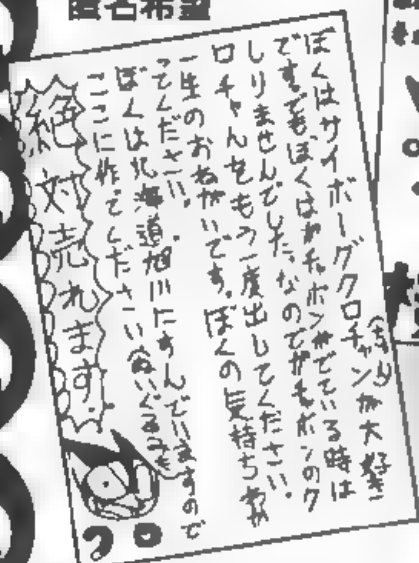 匿名希望
ぼくはサイボーグクロチャン(まん)が大好き
です。でもぼくはガチャポンがでている時は
しりませんでした。なのでガチャポンのク
ロチャんをもう一度出してください。
一生のおねがいです。ぼくの気持ちわか
ってください。
ぼくは北海道旭川にすんでいますので
ここに作ってください(ぬいぐるみも)
絶対売れます。
クロ